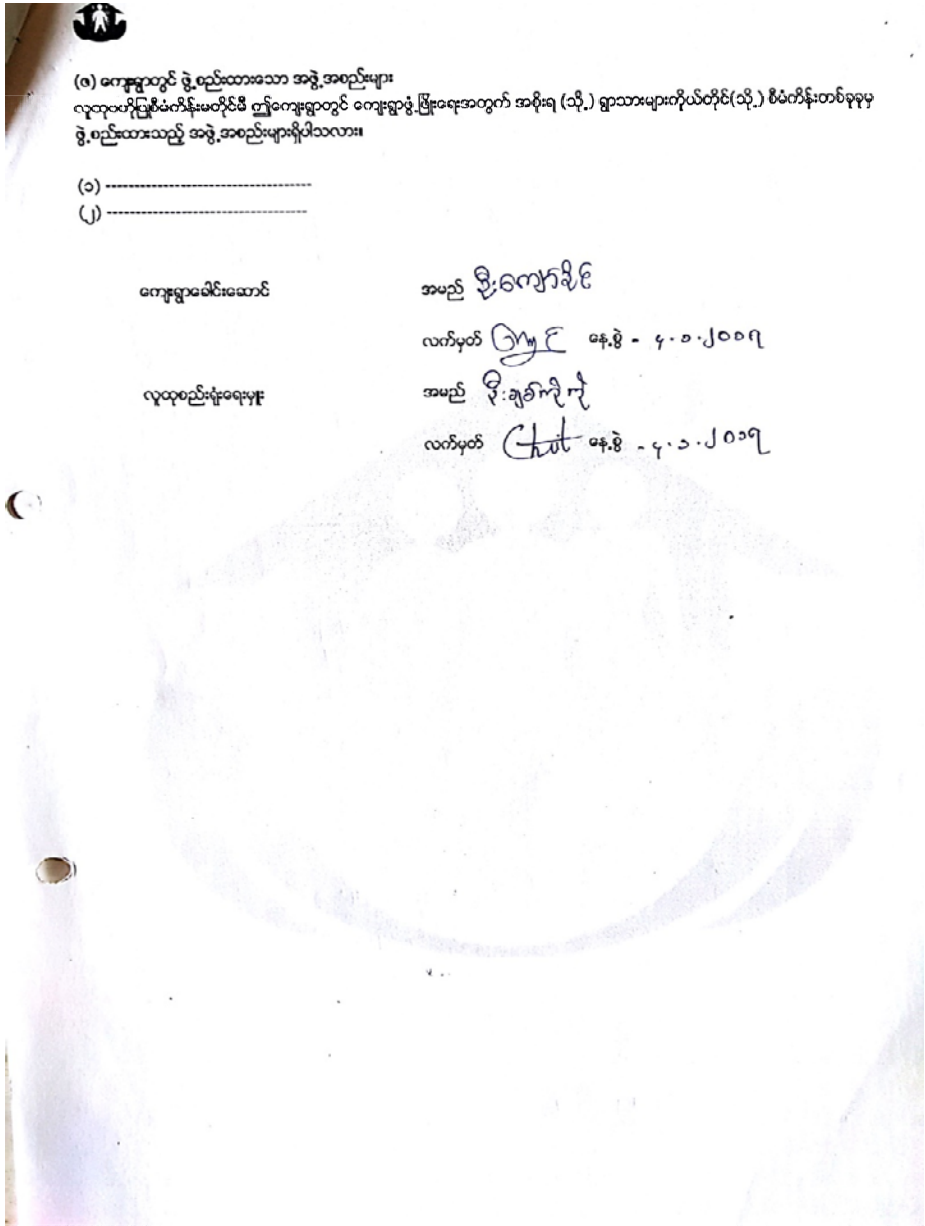 (ဇ) ကျေးရွာတွင် ဖွဲ့စည်းထားသော အဖွဲ့အစည်းများ
လူထုဗဟိုပြုစီမံကိန်းမတိုင်မီ ဤကျေးရွာတွင် ကျေးရွာဖွံ့ဖြိုးရေးအတွက် အစိုးရ (သို့) ရွာသားများကိုယ်တိုင်(သို့) စီမံကိန်းတစ်ခုခုမှ
ဖွဲ့စည်းထားသည့် အဖွဲ့အစည်းများရှိပါသလား။
(၁) ------------------------------------
(၂) -----------------------------------
ကျေးရွာခေါင်းဆောင် အမည် ဦးကျော်ခိုင်
လက်မှတ် နေ့စွဲ - ၄.၁.၂၀၁၇
လူထုစည်းရုံးရေးမှူး အမည် ဦးချစ်ကိုကို
လက်မှတ် Chit နေ့စွဲ - ၄.၁.၂၀၁၇